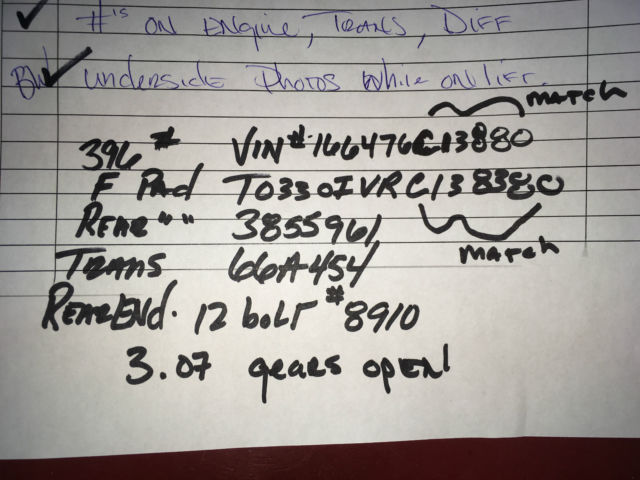 #'s ON ENgine, TRANS, DIFF
BW underside Photos While on lift.
MATCH
396 # VIN # 166476C13880
F Pad T0330IVRC138380
REAR " " 3855961
MATCH
TRANS 66A454
REAR ENd. 12 bOLT # 8910
3.07 gears open!